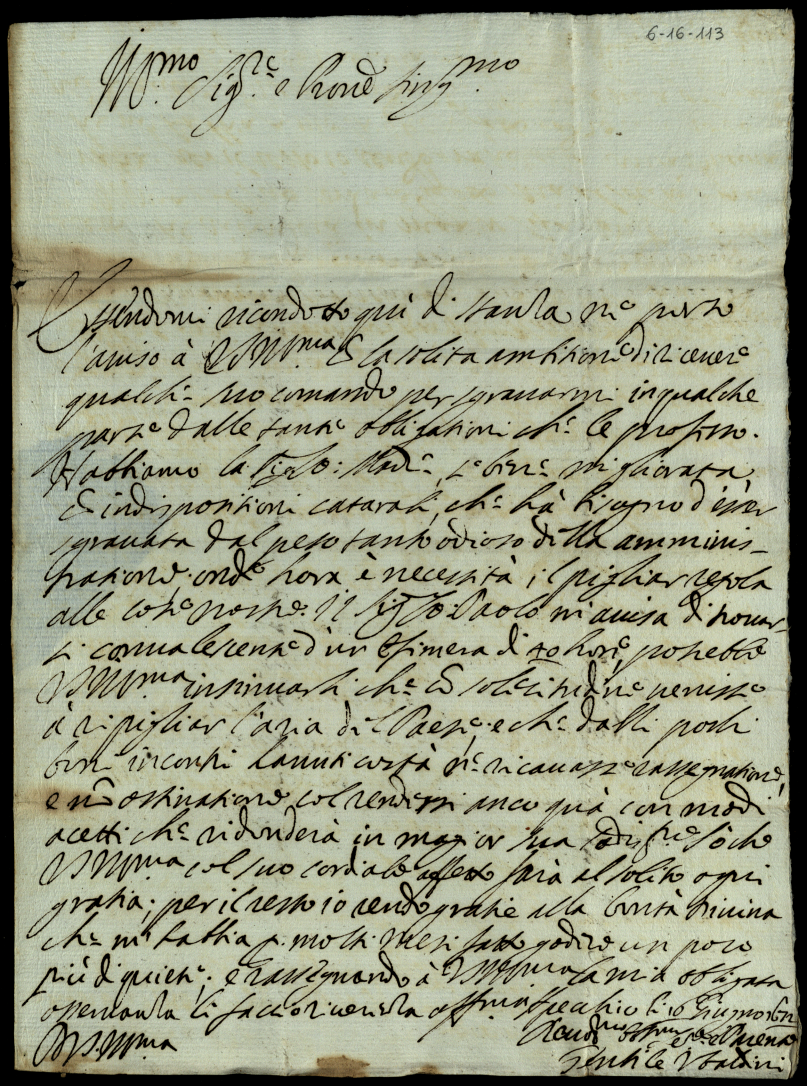 6-16-113
Ill.mo Sig.re e Prone sing.mo
Essendomi ricondotto quì di stanza ne porto
l'auiso à V.S. Ill.ma cō la solita ambitione di riceuere
qualche suo comando per sgrauarmi in qualche
parte dalle tante obligationi che le professo.
Habbiamo la Sig.ra Madre, se bene migliorata
cō indispositioni catarali, che hà bisogno d'esser
sgrauata dal peso tanto odioso della amminis-
tratione onde hora è necessità il pigliar regola
alle cose nostre. Il Sig.r Paolo m'auisa di trouar-
si conualescente d'un efimera di hore, potrebbe
V.S. Ill.ma insinuarli che cō solecitudine venisse
à ripigliar l'aria del Paese, e che dalli pochi
boni incontri hauuti costà ne ricauasse rassegnatione,
e nō ostinatione col rendersi anco quà con modi
acetti che ridonderà in magior sua Sò che
V.S. Ill.ma col suo cordiale affetto farà al solito ogni
gratia; per il resto io rendo gratie alla bontà Diuina
che m'habbia p. molti mesi fatto godere un poco
più di quiete; e rassegnando à V.S. Ill.ma la mia obligata
osseruanza li faccio riuerenza Specchio li 10 Giugno
D.V.S. Ill.ma
Gentile Vbaldini